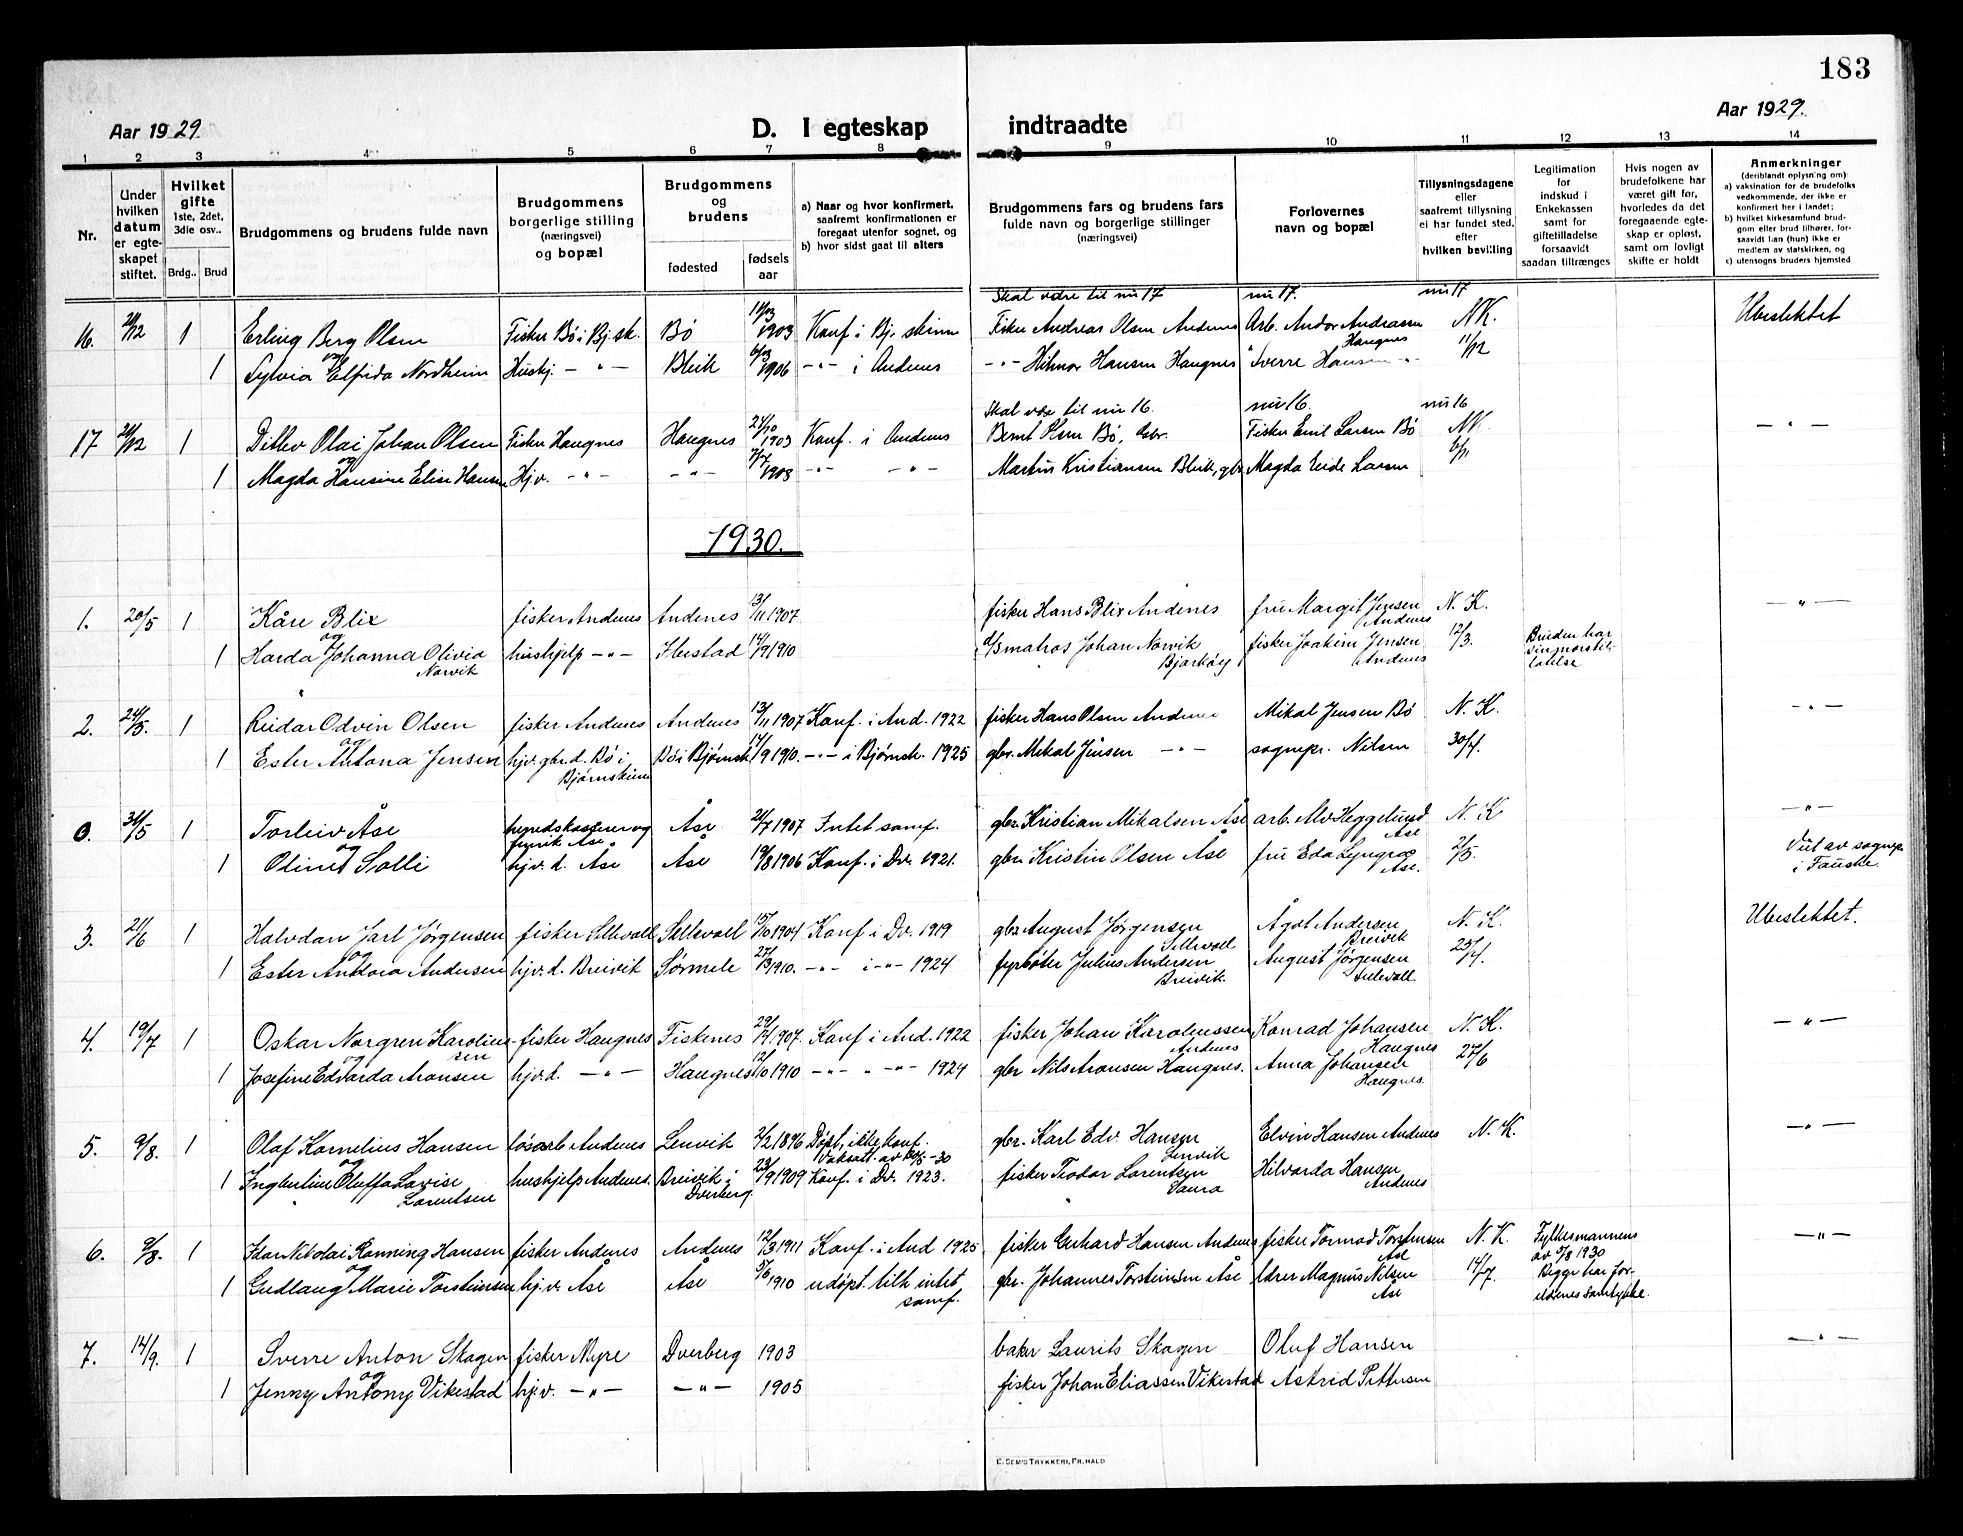 183
Aar 1929.
D. I egteskap indtraadte
Aar 1929.
1 2 3 4 5 6 7 8 9 10 11 12 13 14
Nr.
Under hvilken datum er egteskapet stiftet.
Hvilket gifte 1ste, 2det, 3die osv..
Brdg.. Brud
Brudgommens og brudens fulde navn
Brudgommens borgerlige stilling (næringsvei) og bopæl
Brudgommens og brudens
fødested
fødselsaar
a) Naar og hvor konfirmert, saafremt konfirmationen er foregaat utenfor sognet, og
b) hvor sidst gaat til alters
Brudgommens fars og brudens fars fulde navn og borgerlige stillinger (næringsvei)
Forlovernes navn og bopæl
Tillysningsdagene eller saafremt tillysning ei har fundet sted, efter hvilken bevilling
Legitimation for indskud i Enkekassen samt for giftetilladelse forsaavidt saadan tiltrænges
Hvis nogen av brudefolkene har været gift før, hvorledes da det foregaaende egteskap er opløst, samt om lovligt skifte er holdt
Anmerkninger
(deriblandt oplysning om)
a) vaksination for de brudefolks vedkommende, der ikke er konfirmert her i landet;
b) hvilket kirkesamfund brudgom eller brud tilhører, forsaavidt han (hun) ikke er medlem av statskirken, og
c) utensogns bruders hjemsted
Skal være til nr 17 nr 17. nr 17
16. 1 Erling Berg Olsen Fisker Bø i Bj.sk. Bø 1903 Konf i Bj. skinn Fisker Andreas Olsen Andenes Arb. Andor Andrassen Haugnes NK. Ubeslektet
og
1 Sylvia Elfrida Nordheim Hushj. -"- Bleik 1906 -"- i Andenes -"- Hilmar Hansen Haugnes Sverre Hansen -"- 11/12
Skal være til nr 16. nr 16. nr 16
17 1 Ditlev Olai Johan Olsen Fisker Haugnes Haugnes 24/10 1903 Konf. i Andenes Bernt Olsen Bø, Fisker Emil Larsen Bø NK. -"-
og
1 Magda Hansine Elise Hansen Hj.v. -"- -"- 1903 -"- -"- Martin Kristiansen Bleik, gbr Magda Eide Larsen 6/11
1930.
1. 20/5 1 Kåre Blix fisker Andenes Andenes 13/11 1907 fisker Hans Blix Andenes fru Margit Jensen Andenes N. K. -"-
og
1 Harda Johanna Olivia Norvik hushjelp -"- Ibestad 14/9 1910 matros Johan Norvik Bjarkøy fisker Joakim Jensen Andenes 12/3. Bruden har
2. 24/5. 1 Reidar Odvin Olsen fisker Andenes Andenes 13/11 1907 Konf. i And. 1922 fisker Hans Olsen Andenes Mikal Jensen Bø N. K. -"-
og
1 Ester Antona Jensen hjv. gbr.d. Bø i Bjørnskinn Bø i Bjørnsk 14/9 1910. -"- i Bjørnsk. 1925 gbr. Mikal Jensen -"- sognepr. Nilsen 30/4.
0. 31/5 1 Torleiv Åse herredskasserer og Åse Åse 1907 Intet samf. gbr. Kristian Mikalsen Åse arb. Alv Heggelund Åse N. K -"-
og
1 Oline Solli hjv. d. Åse Åse 19/8 1906 Konf. i Dv. 1921. gbr. Kristin Olsen Åse fru Eda Lyngra Åse. 2/5. Viet av sognepr i Fauske.
3. 21/6 1 Halvdan Jarl Jørgensen fisker Sellevoll Sellevoll 15/10 1904 Konf i Dv. 1919 gbr. August Jørgensen Sellevoll Ågot Andersen Breivik N. K. Ubeslektet.
og
1 Ester Andersen hjv.d. Breivik Sørmele 1910. -"- i -"- 1924 fyrbøter Julius Andersen Breivik. August Jørgensen Sellevoll 25/4.
4. 19/7 1 Oskar Norgren Karoliussen fisker Haugnes Fiskenes 1907. Konf i And. 1922 fisker Johan Karoliussen Andenes Konrad Johansen Haugnes N. K. -"-
og
1 Josefine Edvarda Aronsen hjv.d. -"- Haugnes 1910 -"- -"- 1924 gbr Nils Aronsen Haugnes. Anna Johansen Haugnes. 27/6
5. 9/8. 1 Olaf Kornelius Hansen løsarb Andenes Lenvik 2/2 1896 Døpt, ikke konf. gbr. Karl Edv. Hansen Lenvik Elvin Hansen Andenes N. K. -"-
og
1 Ingbertine Oluffa Lovise Lorentsen hushjelp Andenes. Breivik i Dverberg 23/9 1909 Konf. i Dv. 1923. fisker Teodor Lorentsen Saura Hilvarda Hansen Andenes
6. 9/8. 1 Idar Nikolai Rønning Hansen fisker Andenes Andenes 12/3 1911 Konf. i And 1925 fisker Gerhard Hansen Andenes fisker Tormod Torstensen Åse N. K. Fylkesmannens av 5/8 1930 -"-
og
1 Gudlaug Marie Torsteinsen hj.v. Åse Åse 5/6 1910 udøpt. tilh. intet samf. gbr. Johannes Torsteinsen Åse lærer Magnus Nilsen Åse 14/7. Begge har foreldrenes samtykke.
7. 14/9. 1 Sverre Anton Skagen fisker Nyre Dverberg 1903 baker Laurits Skagen Oluf Hansen -"-
og
1 Jenny Antony Vikestad hj.v. -"- -"- 1905 fisker Johan Eliassen Vikestad Astrid Pettersen
E. SEM'S TRYKKERI, FR.HALD